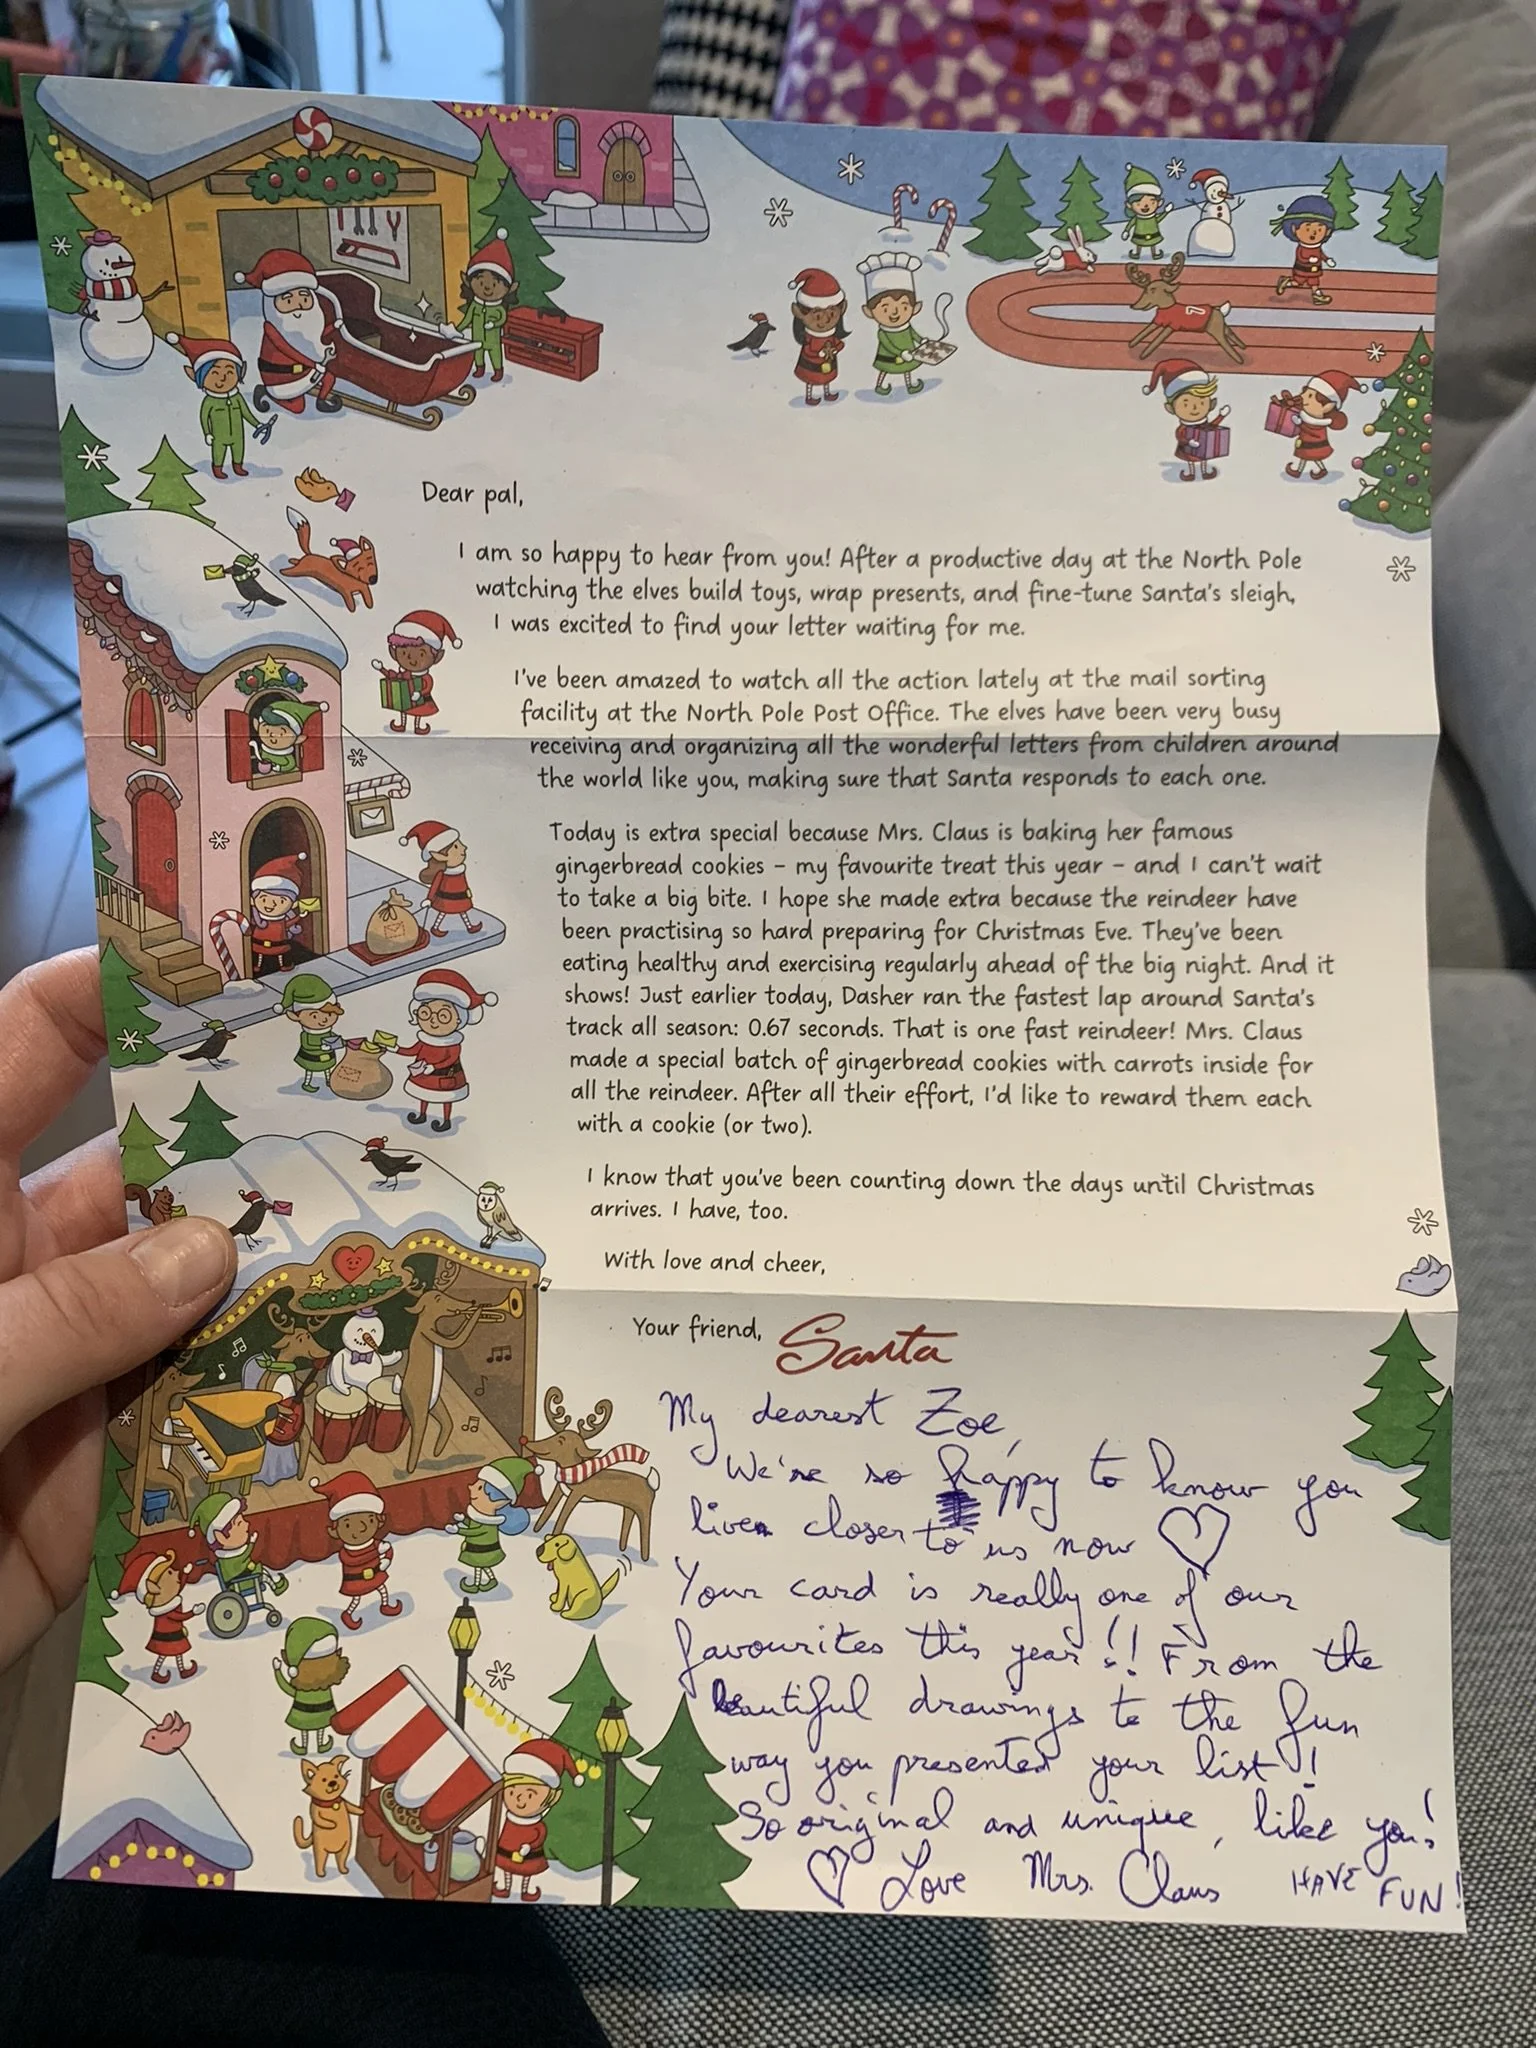 Dear pal,
I am so happy to hear from you! After a productive day at the North Pole
watching the elves build toys, wrap presents, and fine-tune Santa's sleigh,
I was excited to find your letter waiting for me.
I've been amazed to watch all the action lately at the mail sorting
facility at the North Pole Post Office. The elves have been very busy
receiving and organizing all the wonderful letters from children around
the world like you, making sure that Santa responds to each one.
Today is extra special because Mrs. Claus is baking her famous
gingerbread cookies – my favourite treat this year – and I can't wait
to take a big bite. I hope she made extra because the reindeer have
been practising so hard preparing for Christmas Eve. They've been
eating healthy and exercising regularly ahead of the big night. And it
shows! Just earlier today, Dasher ran the fastest lap around Santa's
track all season: 0.67 seconds. That is one fast reindeer! Mrs. Claus
made a special batch of gingerbread cookies with carrots inside for
all the reindeer. After all their effort, I'd like to reward them each
with a cookie (or two).
I know that you've been counting down the days until Christmas
arrives. I have, too.
With love and cheer,
Your friend, Santa
My dearest Zoe,
We're so happy to know you
live closer to us now ♡
Your card is really one of our
favourites this year!! From the
beautiful drawings to the fun
way you presented your list!
So original and unique, like you!
♡ Love Mrs. Claus HAVE FUN!